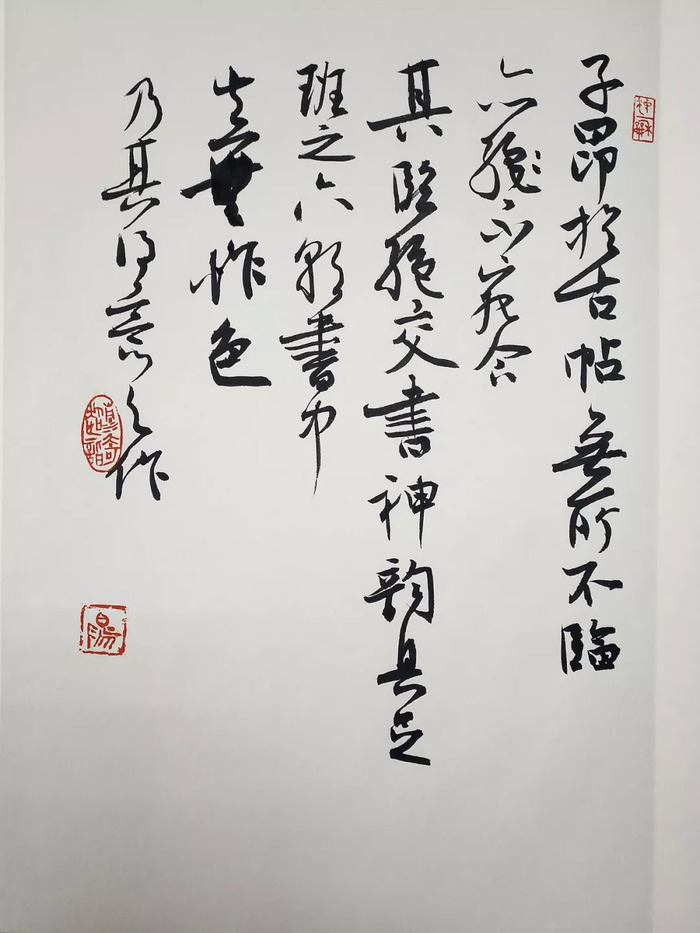 子昂於古帖無所不臨
亦不宛合
其臨絕交書神韻具足
班之六朝書中
無怍色
乃其得意之作